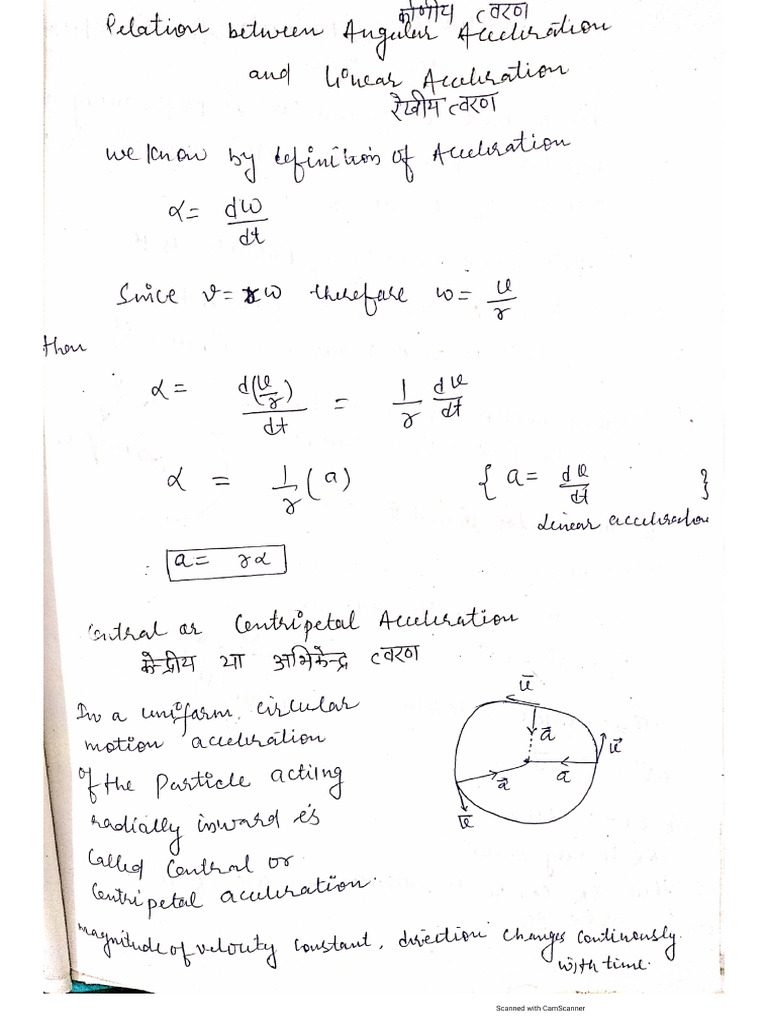 कोणीय त्वरण
Relation between Angular Acceleration
and linear Acceleration
रेखीय त्वरण
we know by definition of Acceleration
α = dω/dt
Since v = rω therefore ω = v/r
then
α = d(v/r)/dt = 1/r dv/dt
α = 1/r (a) { a = dv/dt }
Linear acceleration
: a = rα
Central or Centripetal Acceleration
केन्द्रीय या अभिकेन्द्र त्वरण
In a uniform circular
motion acceleration
of the Particle acting
radially inward is
called central or
Centripetal acceleration.
v⃗
a⃗
v⃗
a⃗
a⃗
v⃗
magnitude of velocity constant, direction changes continously
with time.
Scanned with CamScanner